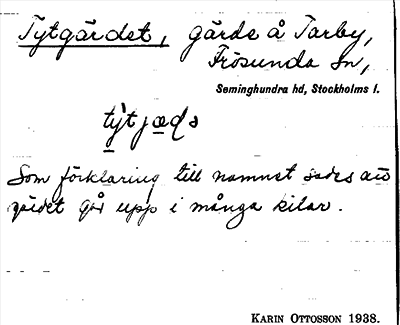 Tytgärdet, gärde å Tarby,
Frösunda sn,
Seminghundra hd, Stockholms l.
tỳtjæḍə
Som förklaring till namnet sades att
gärdet går upp i många kilar.
KARIN OTTOSSON 1938.